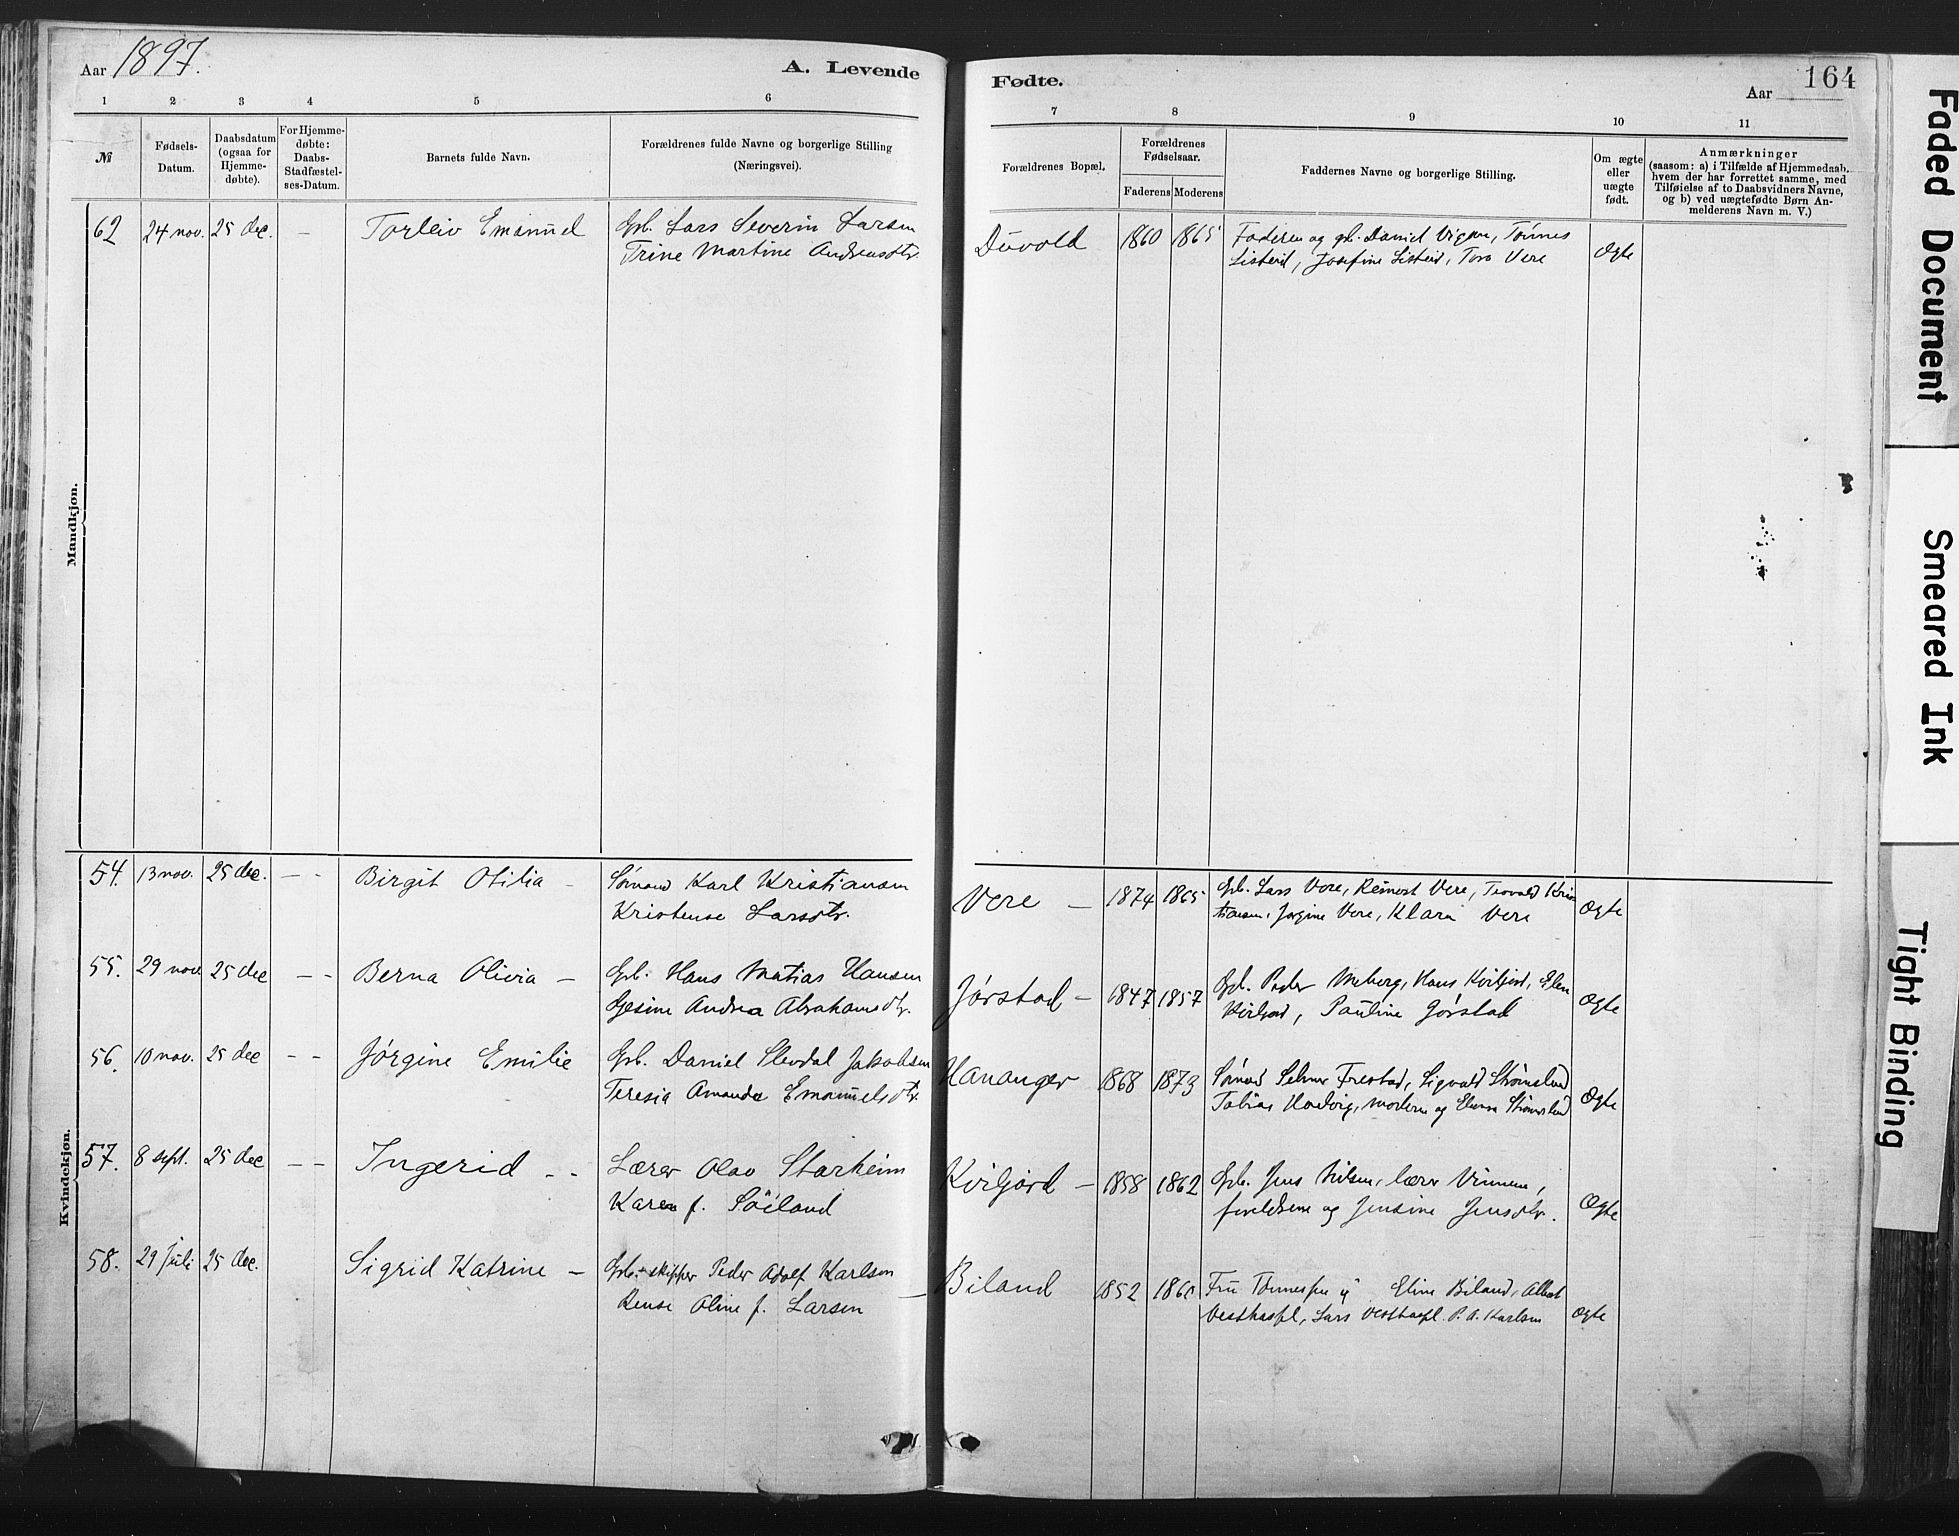 Aar 1897.
A. Levende
Fødte.
Aar
164
1 2 3 4 5 6
7 8 9 10 11
№
Fødsels-
Datum.
Daabsdatum
(ogsaa for
Hjemme-
døbte).
For Hjemme-
døbte:
Daabs-
Stadfæstel-
ses-Datum.
Barnets fulde Navn.
Forældrenes fulde Navne og borgerlige Stilling
(Næringsvei).
Forældrenes Bopæl.
Forældrenes
Fødselsaar.
Faderens Moderens
Faddernes Navne og borgerlige Stilling.
Om ægte
eller
uægte
født.
Anmærkninger
(saasom: a) i Tilfælde af Hjemmedaab,
hvem der har forrettet samme, med
Tilføielse af to Daabsvidners Navne,
og b) ved uægtefødte Børn An-
melderens Navn m. V.)
Mandkjøn.
62 24 nov. 25 dec. – Torleiv Emanuel Gb. Lars Severin Larsen
Trine Martine Andreasdtr.
Duvold 1860 1865 Faderen og gb. Daniel Vigene, Tønnes
Listeid, Josefine Listeid, Tora Vere
Ægte
Kvindekjøn.
54. 13 nov. 25 dec. – - Birgit Otilia – Sømand Karl Kristiansen
Kristense Larsdtr.
Vere – 1874 1865 Gb. Lars Vere, Reinert Vere, Teovald Kris
tiansen, Jørgine Vere, Klara Vere
Ægte
55. 29 nov. 25 dec – - Berna Olivia – Gb. Hans Matias Hansen
Gesine Andrea Abrahamsdtr.
Jørstad – 1847 1857 Gb. Peder Meberg, Hans Kviljord, Elen
Kviljord, Pauline Jørstad
Ægte
56. 10 nov. 25 dec – - Jørgine Emilie Gb. Daniel Slevdal Jakobsen
Teresia Amanda Emanuelsdtr.
Hananger 1868 1873 Sømand Selmer Frestad, Sigvald Strømsland
Tobias Hodvig, moderen og Elense Strømsland
Ægte
57. 8 sept. 25 dec – - Ingerid - - Lærer Olav Starheim
Karen f. Søiland
Kviljord – 1858 1862 Gb. Jens Nilsen, lærer Vinnem,
foreldrene og Jensine Jensdtr.
Ægte
58. 29 juli 25 dec. Sigrid Katrine – Gb. + skipper Peder Adolf Karlsen
Rense Oline f. Larsen –
Biland 1852 1860 Fru Tønnessen Eline Biland, Albert
Vesthassel, Lars Vesthassel. P. A. Karlsen
Ægte
Faded Document
Smeared Ink
Tight Binding